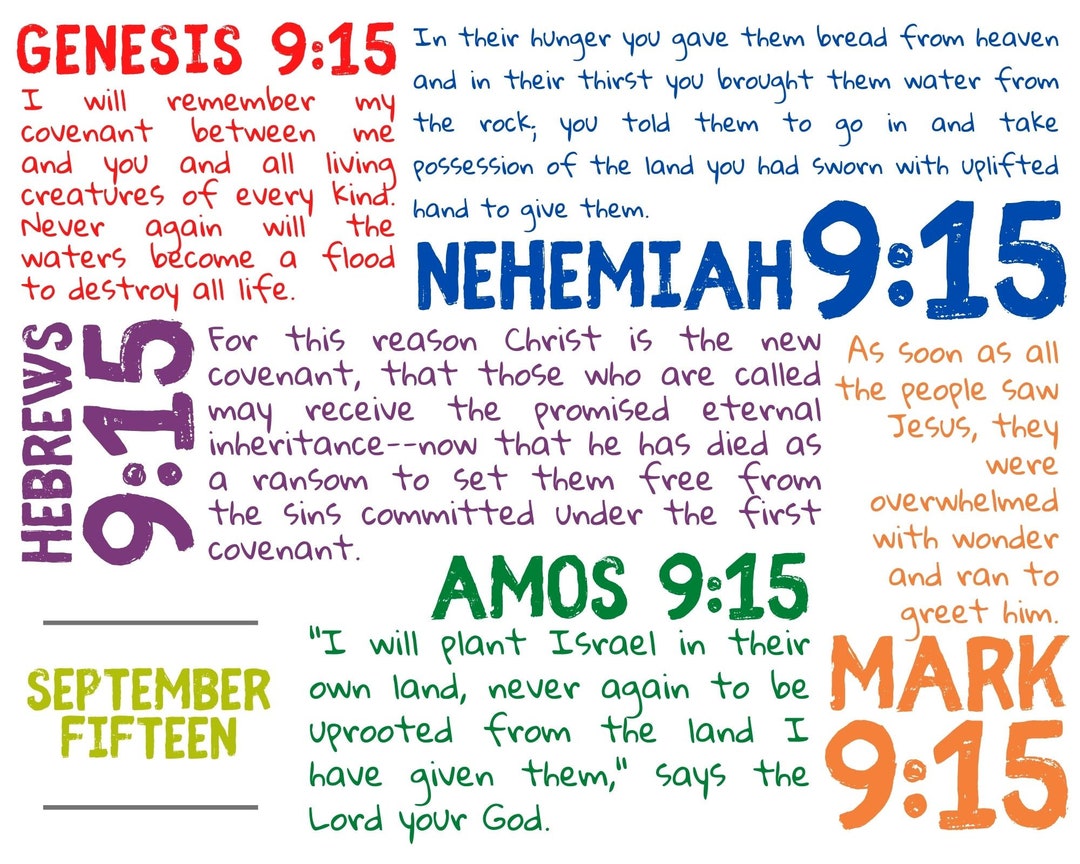 GENESIS 9:15
I will remember my
covenant between me
and you and all living
creatures of every kind.
Never again will the
waters become a flood
to destroy all life.
In their hunger you gave them bread from heaven
and in their thirst you brought them water from
the rock; you told them to go in and take
possession of the land you had sworn with uplifted
hand to give them.
NEHEMIAH 9:15
HEBREWS
9:15
For this reason Christ is the new
covenant, that those who are called
may receive the promised eternal
inheritance--now that he has died as
a ransom to set them free from
the sins committed under the first
covenant.
As soon as all
the people saw
Jesus, they
were
overwhelmed
with wonder
and ran to
greet him.
MARK
9:15
AMOS 9:15
"I will plant Israel in their
own land, never again to be
uprooted from the land I
have given them," says the
Lord your God.
SEPTEMBER
FIFTEEN